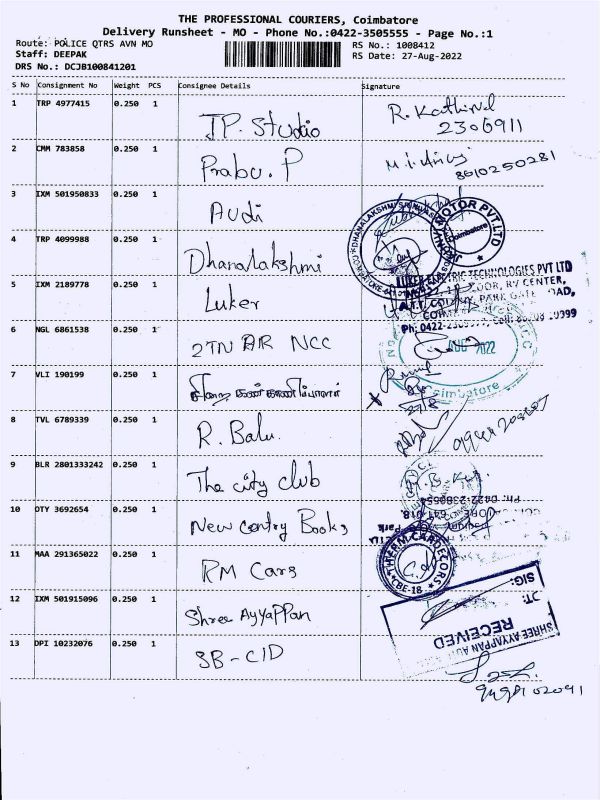 THE PROFESSIONAL COURIERS, Coimbatore
Delivery Runsheet - MO - Phone No.:0422-3505555 - Page No.:1
Route: POLICE QTRS AVN MO
Staff: DEEPAK
DRS No.: DCJB100841201
RS No.: 1008412
RS Date: 27-Aug-2022
S No Consignment No Weight PCS Consignee Details Signature
1 TRP 4977415 0.250 1 JP. Studio R. Kathirvel
2306911
2 CMM 783858 0.250 1 Prabu. P
8610250281
3 IXM 501950833 0.250 1 AUdi
MOTOR PVT.LTD
Coimbatore
4 TRP 4099988 0.250 1 Dhanalakshmi
5 IXM 2189778 0.250 1 Luker
LUKER ELECTRIC TECHNOLOGIES PVT LTD
6 NGL 6861538 0.250 1 2TN AR NCC
AUG 2022
Coimbatore
7 VLI 190199 0.250 1 சிறை கண்காணிப்பாளர்
27/8
8 TVL 6789339 0.250 1 R. Balu.
9 BLR 2801333242 0.250 1 The city club
Ph: 0422-2380554
10 OTY 3692654 0.250 1 New Centry Books
11 MAA 291365022 0.250 1 RM Cars
CBE-18
12 IXM 501915096 0.250 1 Shree Ayyappan
SIG:
DT:
RECEIVED
SHREE AYYAPPAN
13 DPI 10232076 0.250 1 SB-CID